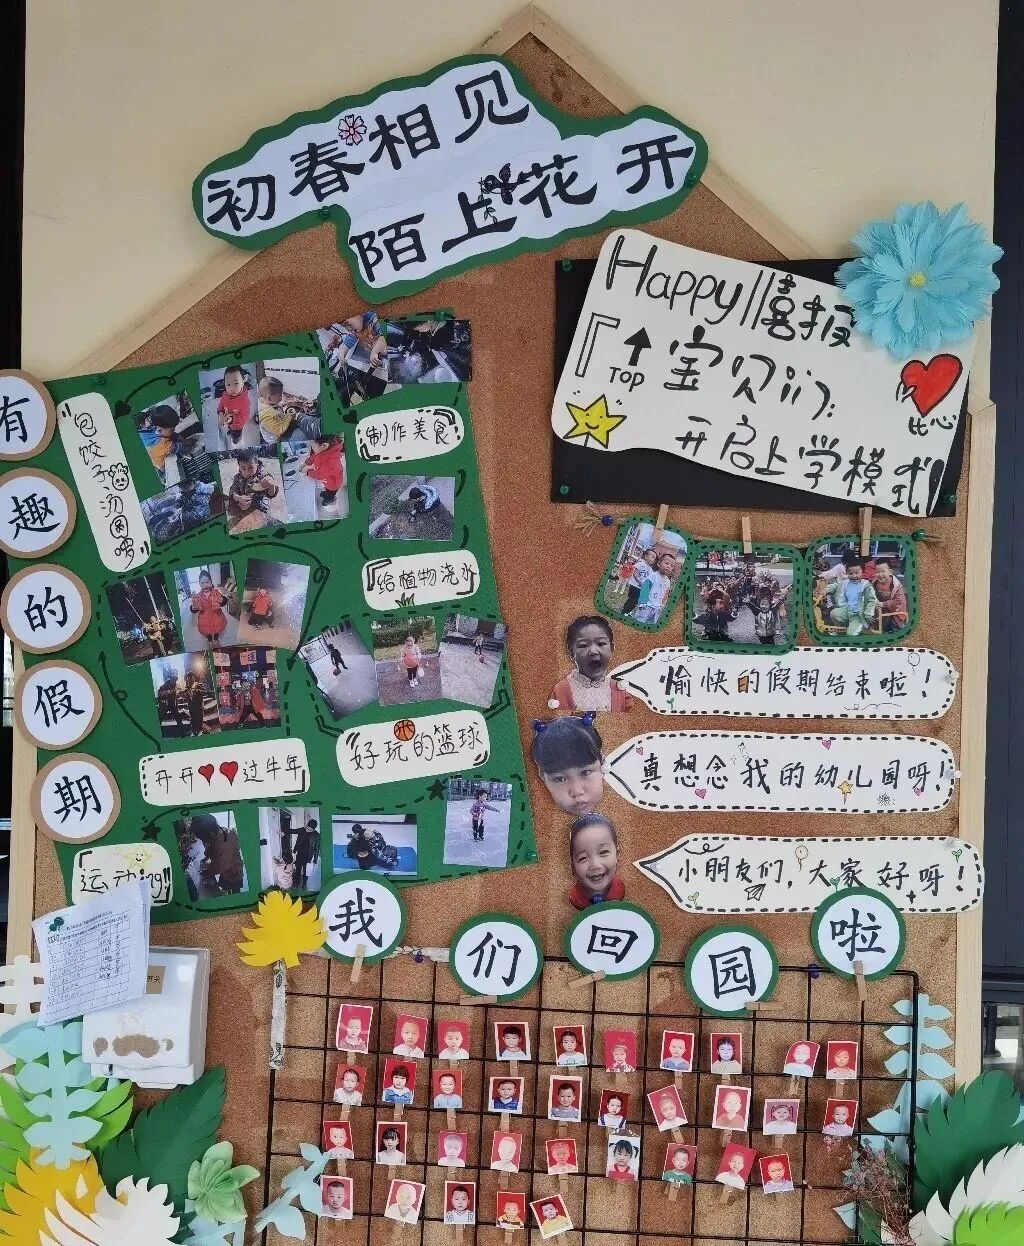 初春相见
陌上花开
Happy 喜报
『↑ 宝贝们:
TOP
开启上学模式
比心
有趣的假期
包饺子、汤圆啰
制作美食
给植物浇水
好玩的篮球
开开♥♥过牛年
运动ing
愉快的假期结束啦！
真想念我的幼儿园呀！
小朋友们，大家好呀！
我们回园啦
开关